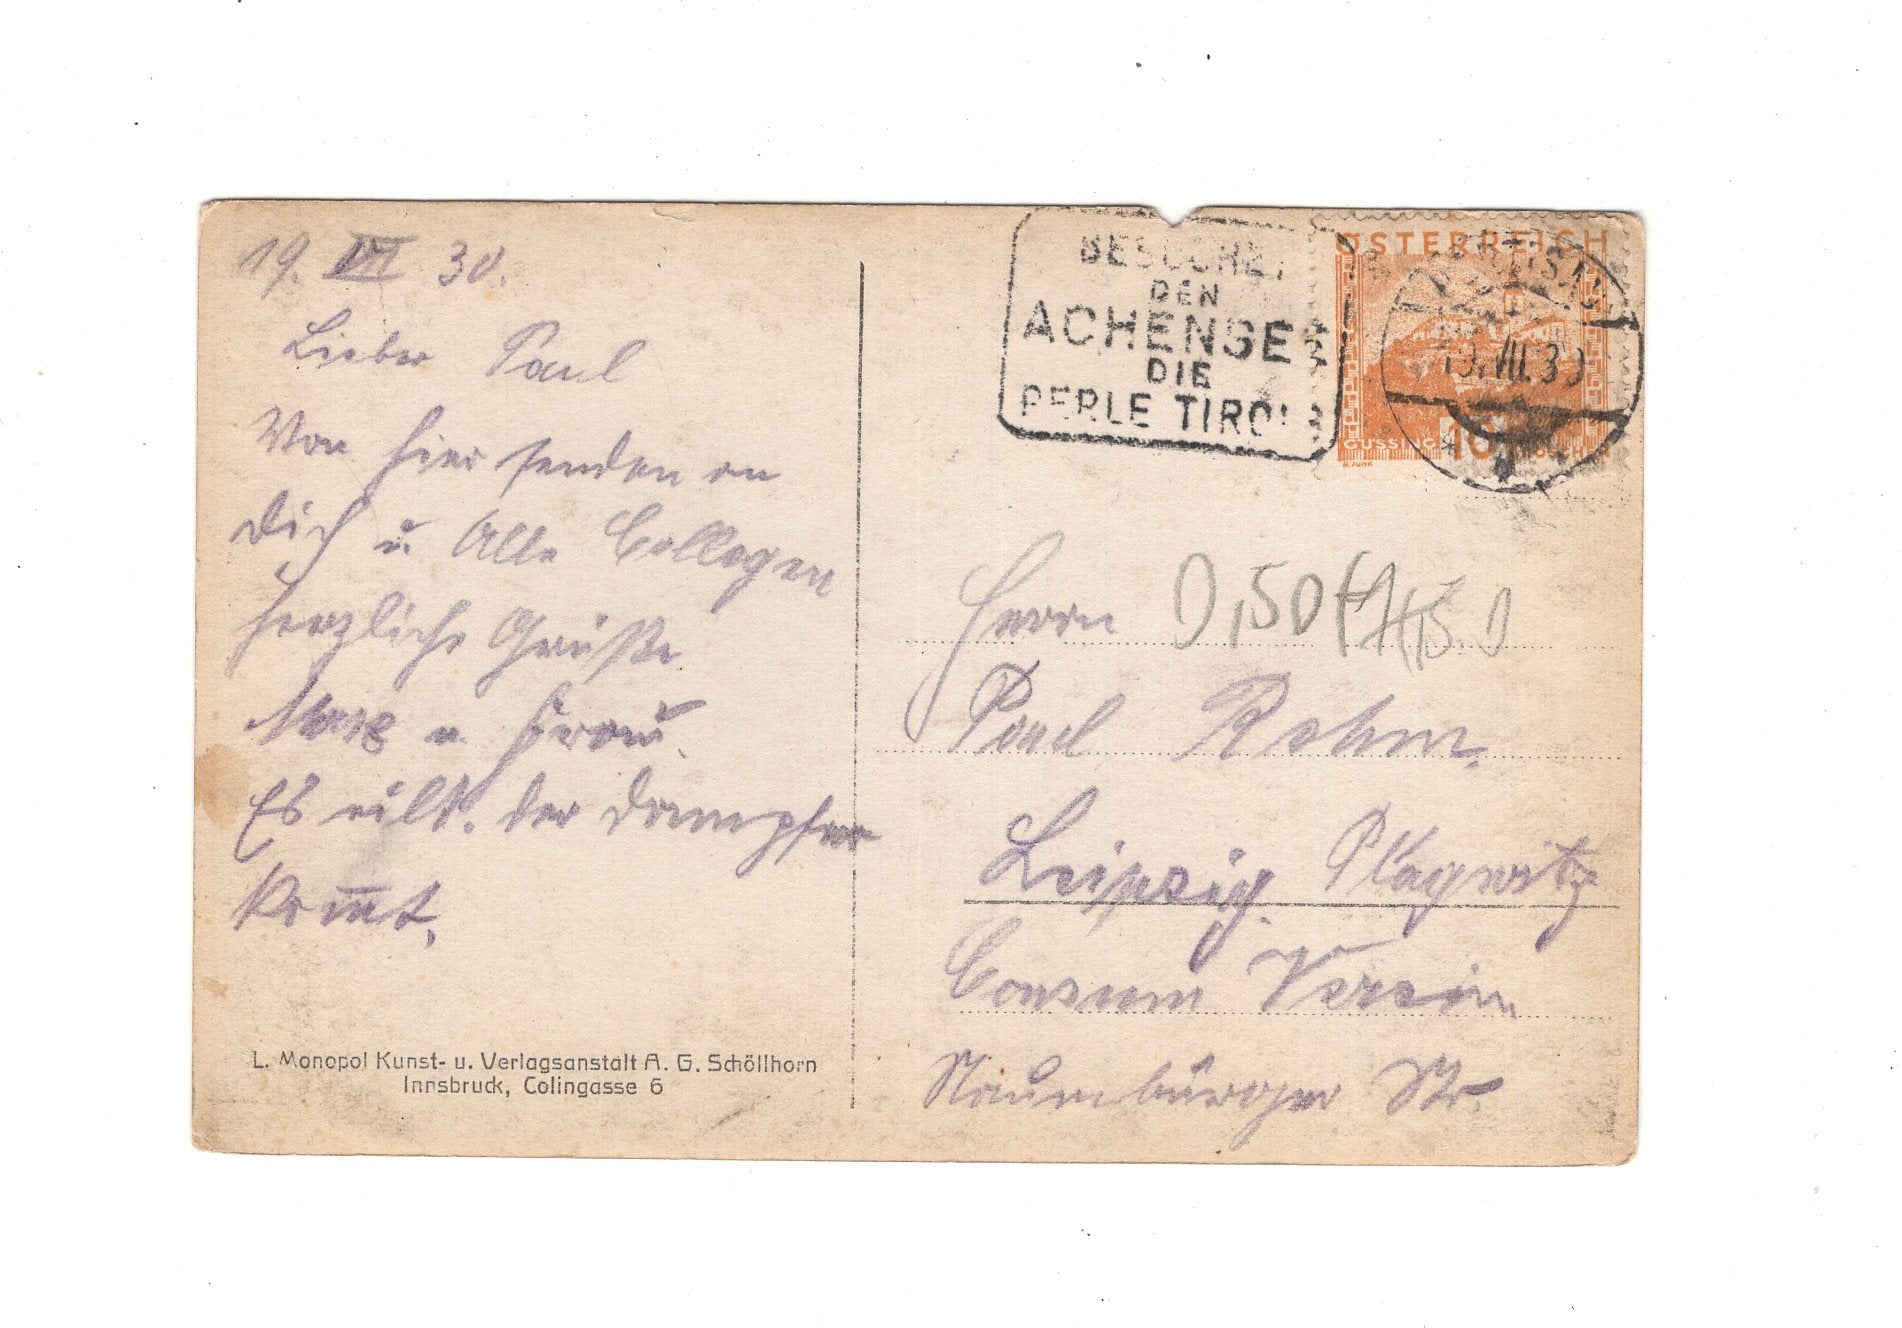 19. VII 30.
Lieber Paul
Von hier senden an
Dich u. Alle Collegen
herzliche Grüße
Max u. Frau.
Es eilt. der Dampfer
kom̅t.
L. Monopol Kunst- u. Verlagsanstalt A. G. Schöllhorn
Innsbruck, Colingasse 6
BESUCHET
DEN
ACHENSEE
DIE
PERLE TIROLS
ÖSTERREICH
GÜSSING 10 GROSCHEN
H. JUNK
19. VII. 30
Herrn
0,50
Paul Rehm.
Leipzig. Plagwitz
Consum Verein
Naumburger Str.